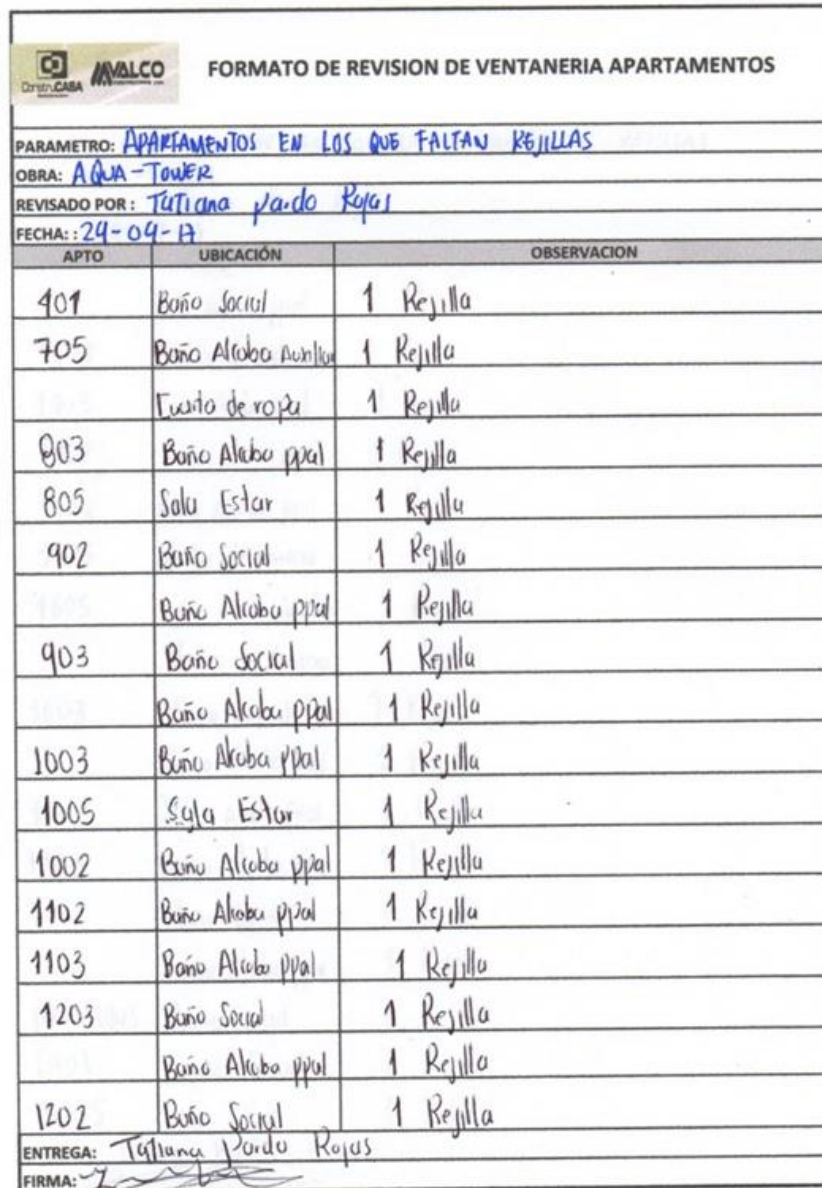 ConstruCASA MVALCO FORMATO DE REVISION DE VENTANERIA APARTAMENTOS
PARAMETRO: APARTAMENTOS EN LOS QUE FALTAN REJILLAS
OBRA: AQUA-TOWER
REVISADO POR : Tatiana Pardo Rojas
FECHA: : 24-04-17
APTO UBICACIÓN OBSERVACION
401 Baño Social 1 Rejilla
705 Baño Alcoba Auxiliar 1 Rejilla
de ropa 1 Rejilla
803 Baño Alcoba ppal 1 Rejilla
805 Sala Estar 1 Rejilla
902 Baño Social 1 Rejilla
Baño Alcoba ppal 1 Rejilla
903 Baño Social 1 Rejilla
Baño Alcoba ppal 1 Rejilla
1003 Baño Alcoba ppal 1 Rejilla
1005 Sala Estar 1 Rejilla
1002 Baño Alcoba ppal 1 Rejilla
1102 Baño Alcoba ppal 1 Rejilla
1103 Baño Alcoba ppal 1 Rejilla
1203 Baño Social 1 Rejilla
Baño Alcoba ppal 1 Rejilla
1202 Baño Social 1 Rejilla
ENTREGA: Tatiana Pardo Rojas
FIRMA: